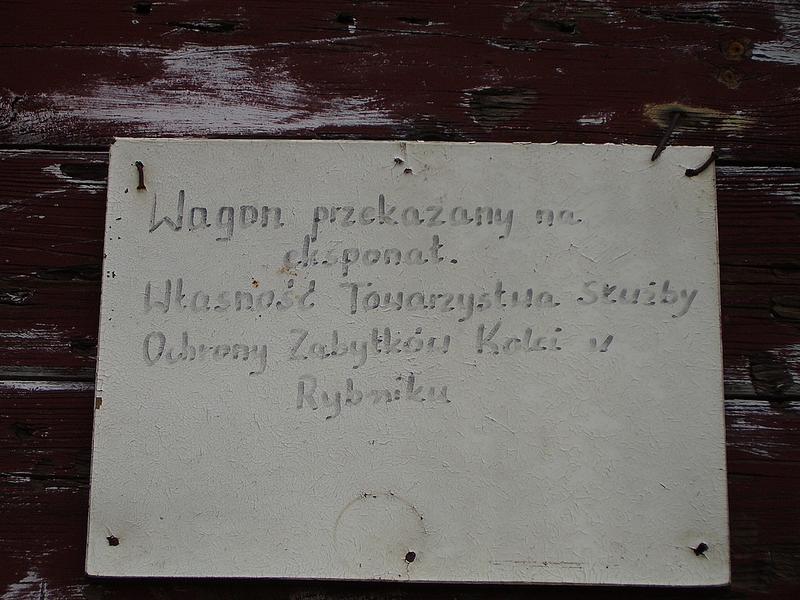 Wagon przekazany na
eksponat.
Własność Towarzystwa Służby
Ochrony Zabytków Kolei w
Rybniku